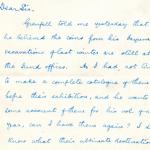 Dear Sir,
Grenfell told me yesterday that
he believed the coins from his
excavations of last winter are still at
the Fund office. As I had not
to make a complete catalogue of them
before their exhibition, and he wants
some account of them for his vol
year, can I have them again? I
know what their ultimate destination